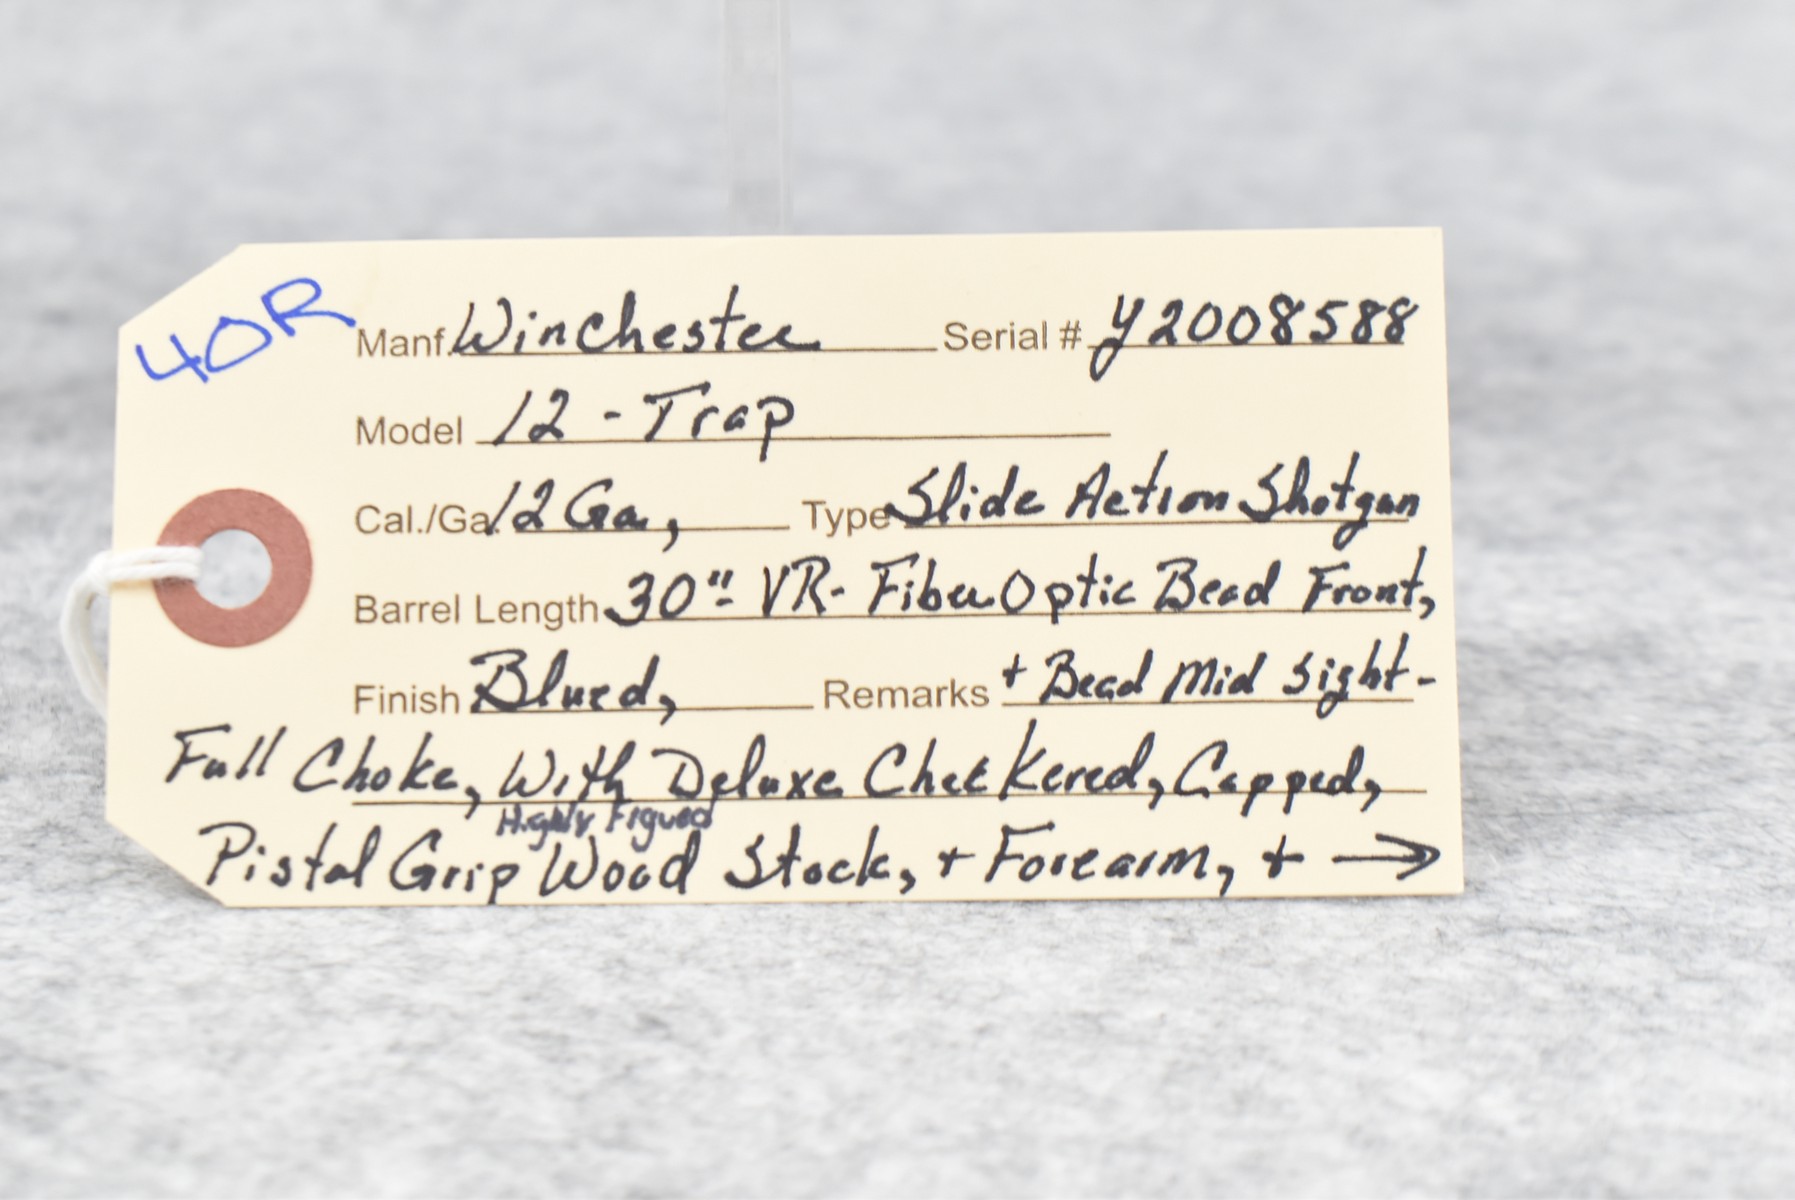 40R
Manf. Winchester Serial # Y2008588
Model 12 - Trap
Cal./Ga. 12 Ga, Type Slide Action Shotgun
Barrel Length 30" VR- Fiber Optic Bead Front,
Finish Blued, Remarks + Bead Mid Sight -
Full Choke, With Deluxe Checkered, Capped,
Highly Figured
Pistol Grip Wood Stock, + Forearm, + →